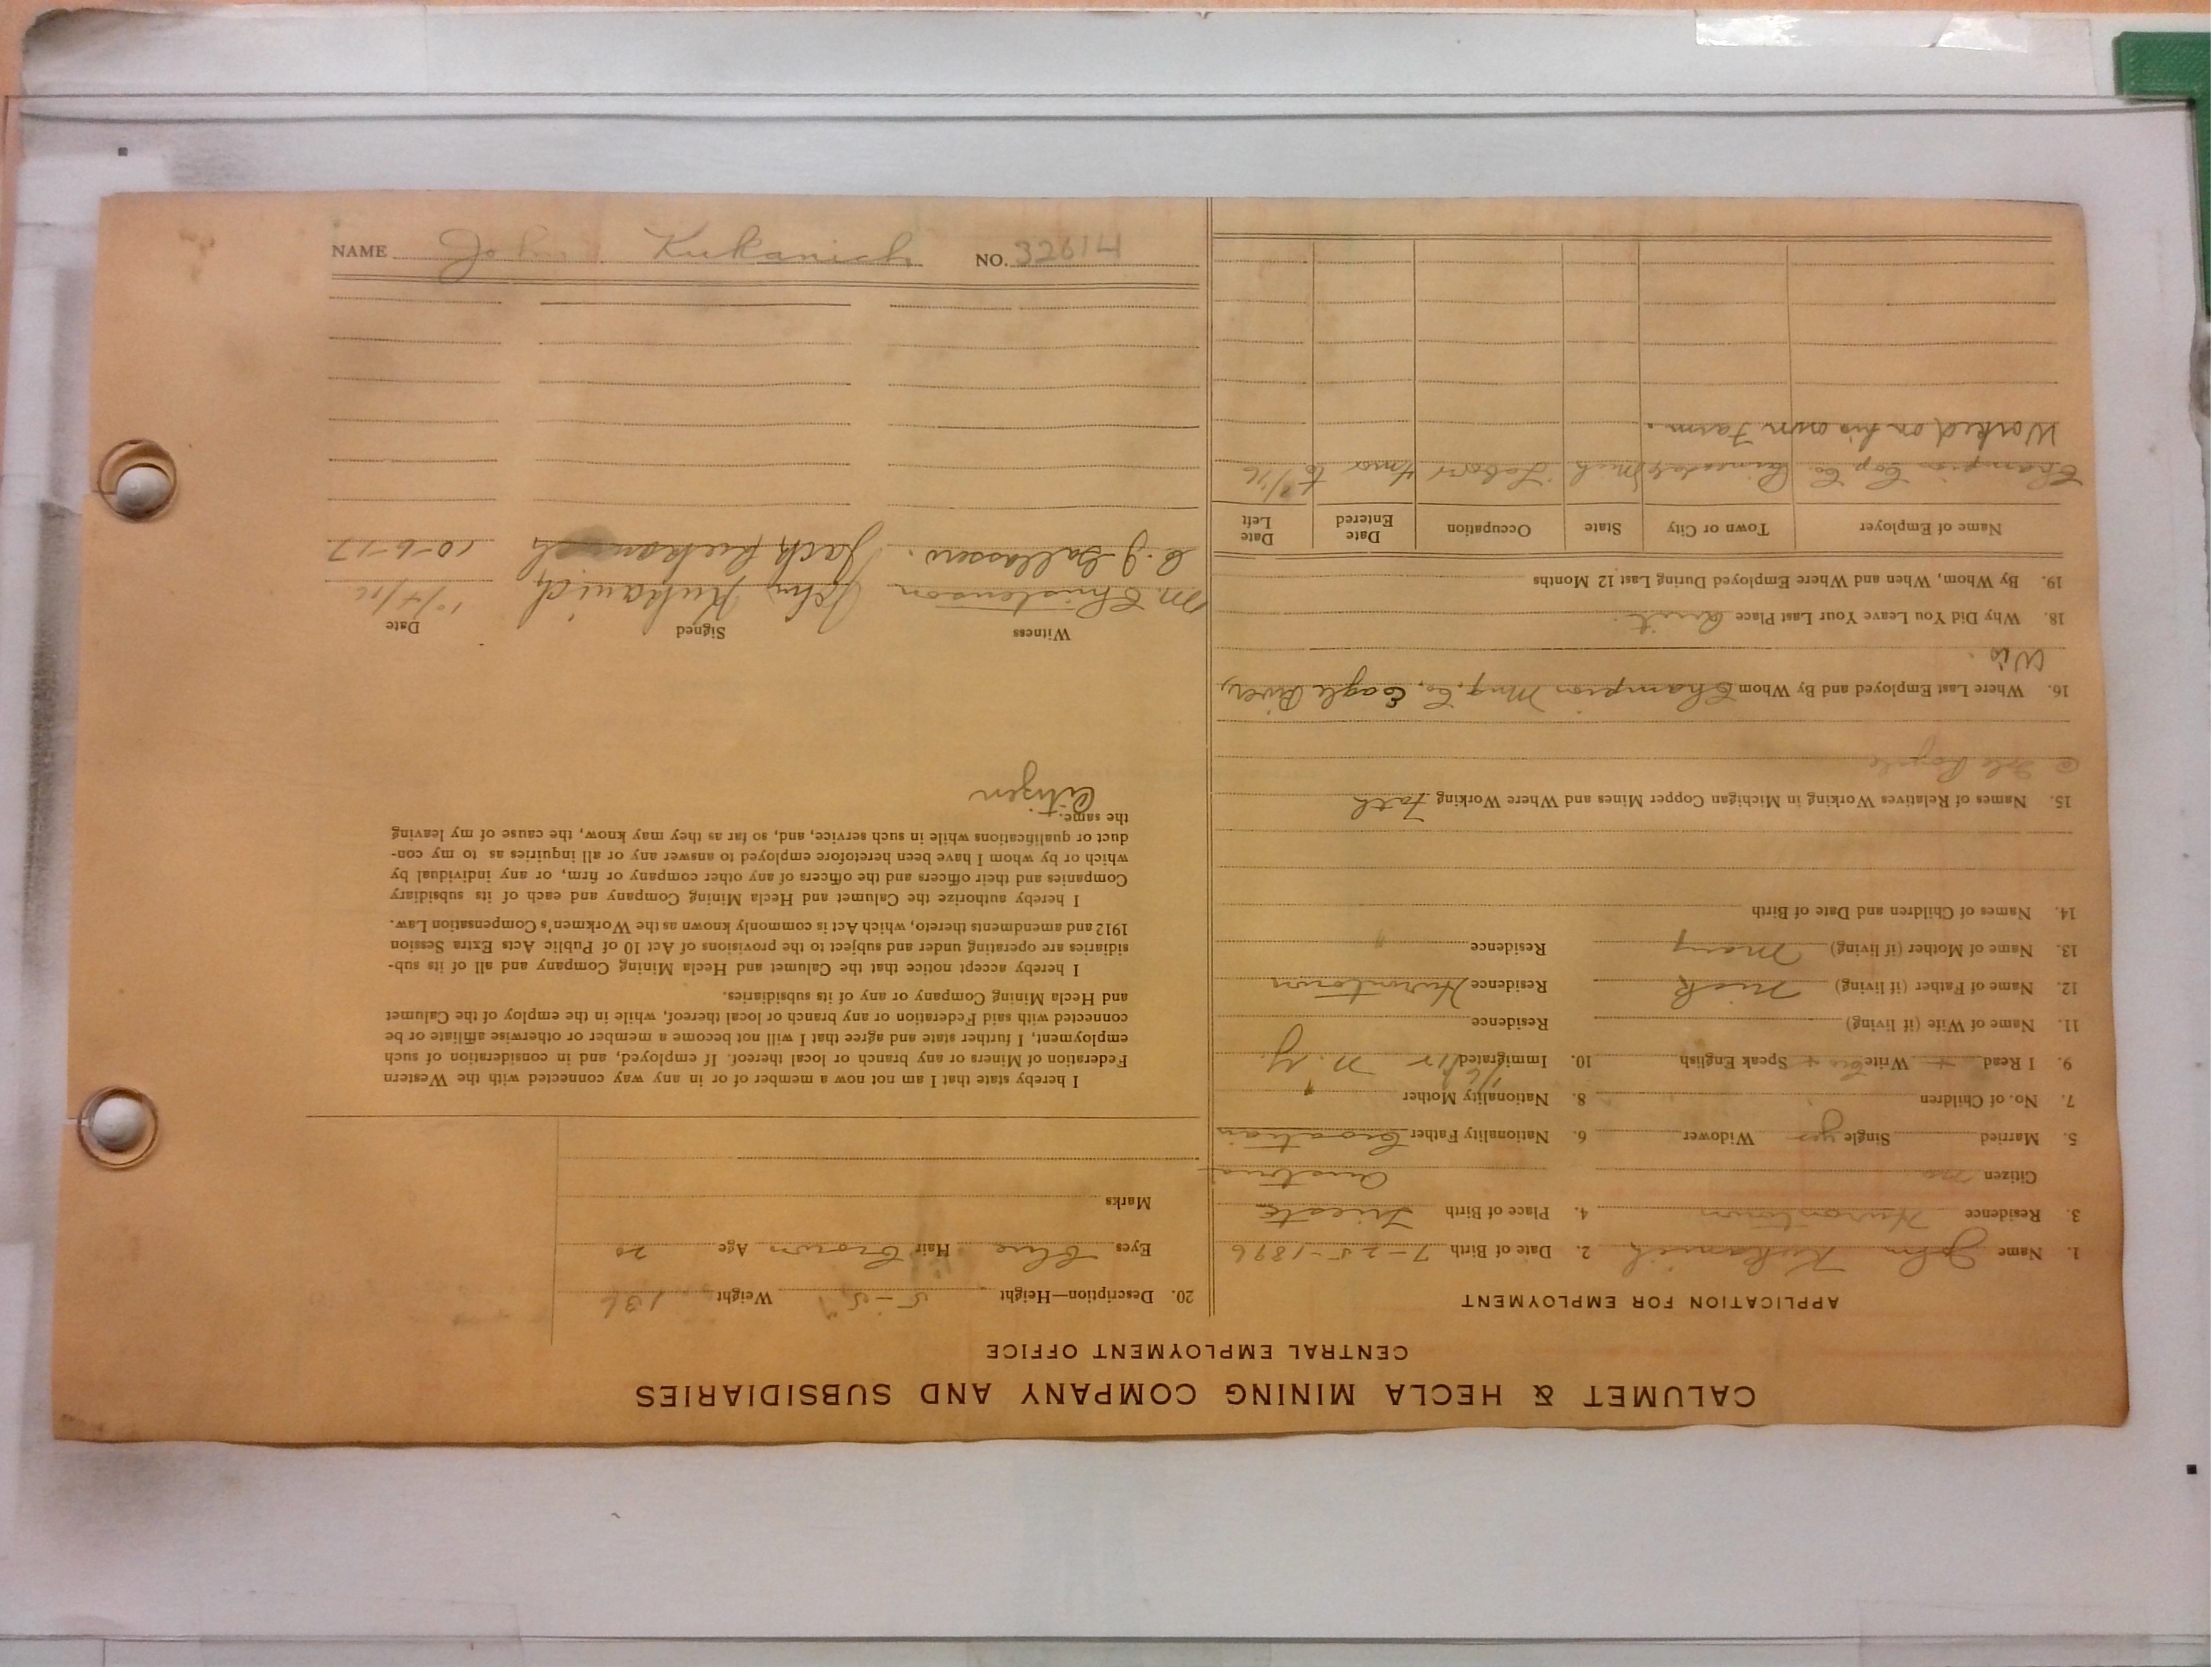 CALUMET & HECLA MINING COMPANY AND SUBSIDIARIES
CENTRAL EMPLOYMENT OFFICE
APPLICATION FOR EMPLOYMENT
1. Name John Kukanich 2. Date of Birth 7-25-1896
3. Residence Hurontown 4. Place of Birth
Citizen no Austria
5. Married Single yes Widower 6. Nationality Father Croatian
7. No. of Children 8. Nationality Mother "
9. I Read + Write Cro + Speak English 10. Immigrated N.Y.
11. Name of Wife (if living) Residence
12. Name of Father (if living) Nick Residence Hurontown
13. Name of Mother (if living) Mary Residence "
14. Names of Children and Date of Birth
15. Names of Relatives Working in Michigan Copper Mines and Where Working Fath
@ Isle Royale
16. Where Last Employed and By Whom Champion Mng. Co, Eagle River,
Wis.
18. Why Did You Leave Your Last Place Quit.
19. By Whom, When and Where Employed During Last 12 Months
Name of Employer Town or City State Occupation Date Entered Date Left
Champion Cop Co Painesdale Mich Labor 4 mos to /16
Worked on his own Farm.
20. Description—Height 5-5 Weight 136
Eyes Blue Hair Brown Age 20
Marks
I hereby state that I am not now a member of or in any way connected with the Western
Federation of Miners or any branch or local thereof. If employed, and in consideration of such
employment, I further state and agree that I will not become a member or otherwise affiliate or be
connected with said Federation or any branch or local thereof, while in the employ of the Calumet
and Hecla Mining Company or any of its subsidiaries.
I hereby accept notice that the Calumet and Hecla Mining Company and all of its sub-
sidiaries are operating under and subject to the provisions of Act 10 of Public Acts Extra Session
1912 and amendments thereto, which Act is commonly known as the Workmen's Compensation Law.
I hereby authorize the Calumet and Hecla Mining Company and each of its subsidiary
Companies and their officers and the officers of any other company or firm, or any individual by
which or by whom I have been heretofore employed to answer any or all inquiries as to my con-
duct or qualifications while in such service, and, so far as they may know, the cause of my leaving
the same.
Citizen
Witness Signed Date
M. Christenson John Kukanich 10/4/16
C. J. Jack Kukanich 10-6-17
NAME John Kukanich NO. 32614